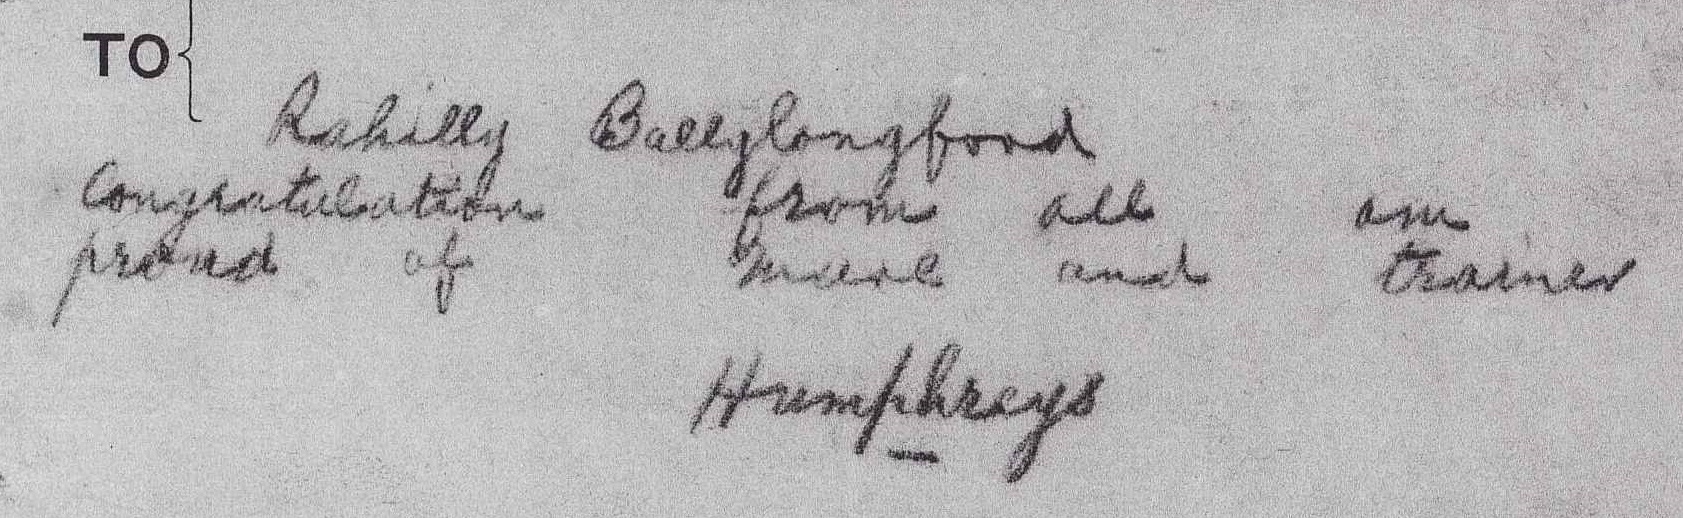 TO
Rahilly Ballylongford
Congratulation from all am
proud of mare and trainer
Humphreys